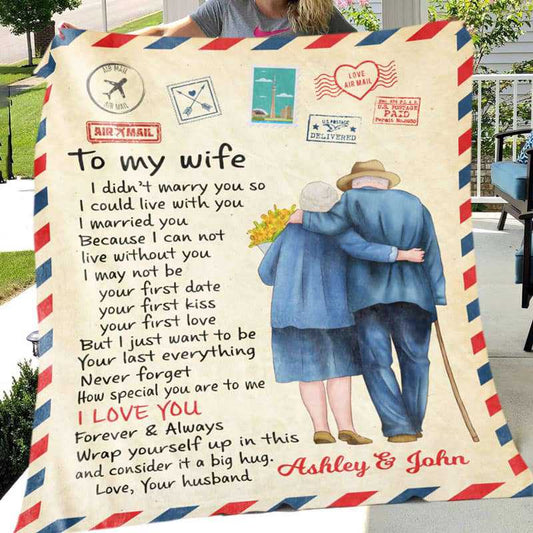 AIR MAIL
AIR MAIL
LOVE
AIR MAIL
U.S. POSTAGE
PAID
AIR MAIL
U.S. POSTAGE
DELIVERED
To my wife
I didn't marry you so
I could live with you
I married you
Because I can not
live without you
I may not be
your first date
your first kiss
your first love
But I just want to be
Your last everything
Never forget
How special you are to me
I LOVE YOU
Forever & Always
Wrap yourself up in this
and consider it a big hug.
Love, Your husband
Ashley & John